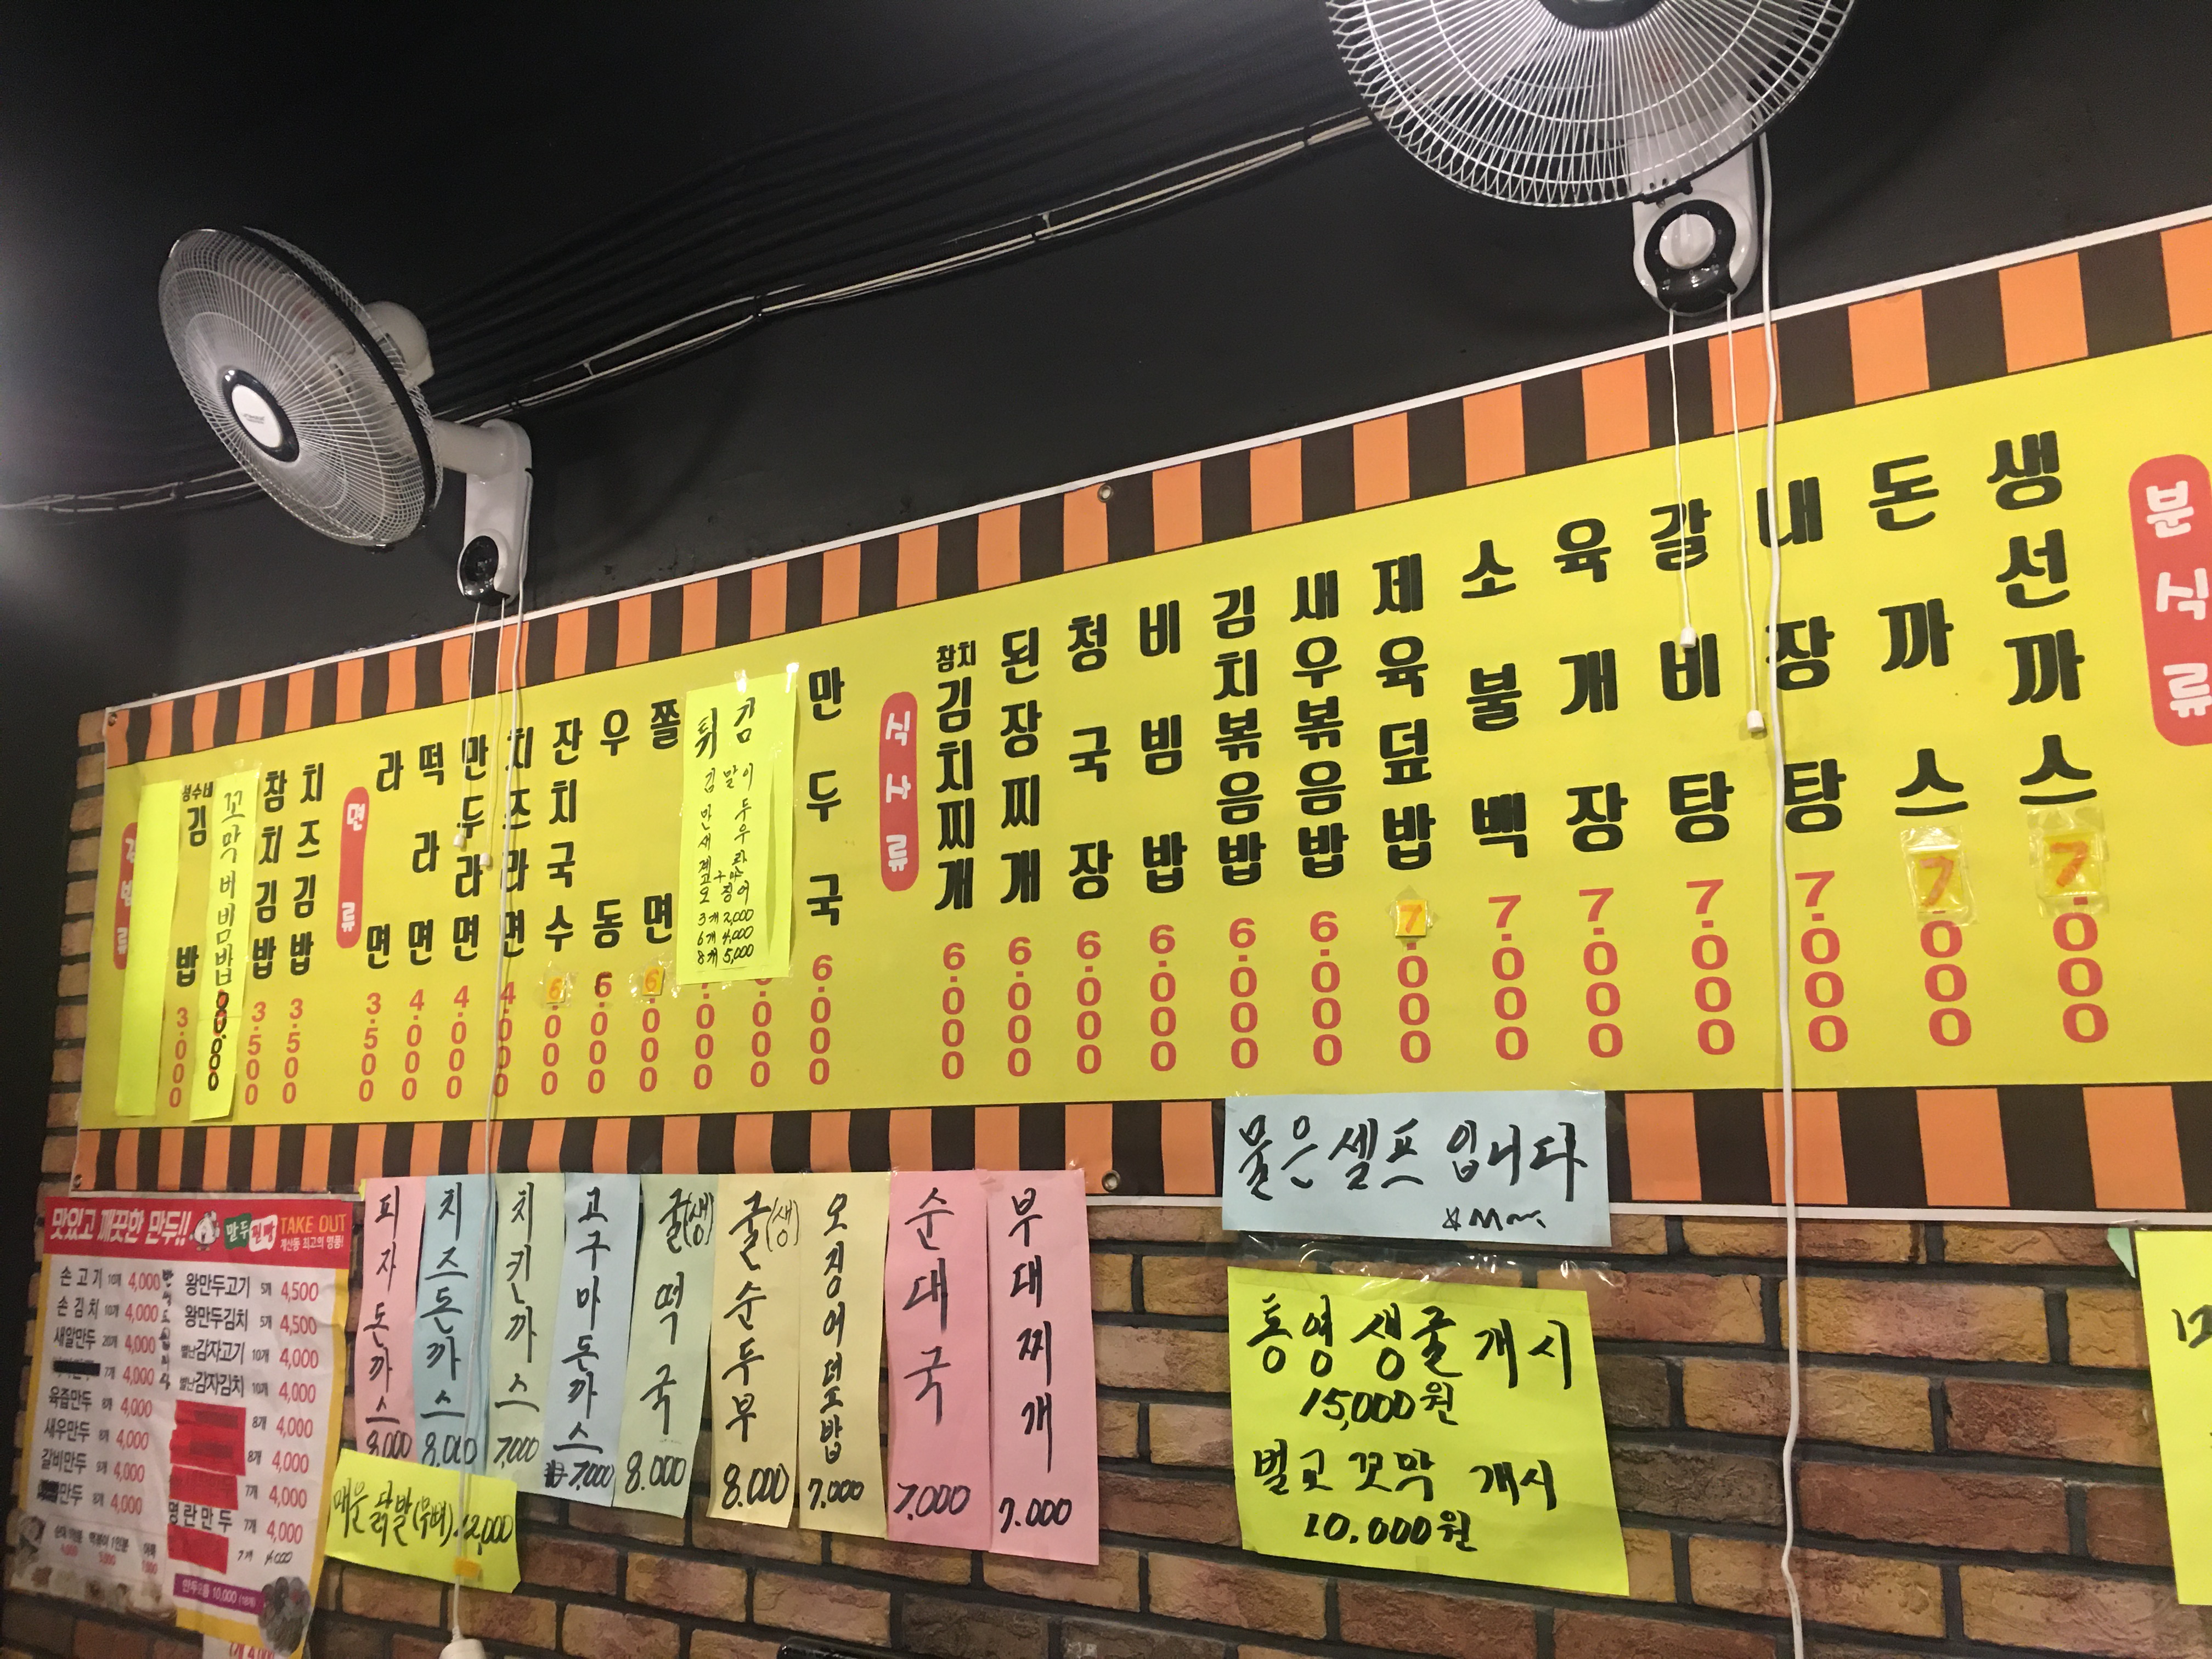 성수네
김밥 3.000
꼬막비빔밥
참치김밥 3.500
치즈김밥 3.500
면류
라면 3.500
떡라면 4.000
만두라면 4.000
치즈라면 4.000
잔치국수 6.000
우동 6.000
쫄면 6.000
튀김
김말이
만두
새우
오징어
3개 2,000
6개 4,000
8개 5,000
만두국 6.000
식사류
참치김치찌개 6.000
된장찌개 6.000
청국장 6.000
비빔밥 6.000
김치볶음밥 6.000
새우볶음밥 6.000
제육덮밥 7.000
소불백 7.000
육개장 7.000
갈비탕 7.000
내장탕 7.000
돈까스 7.000
생선까스 7.000
분식류
맛있고 깨끗한 만두!! TAKE OUT
계산동 최고의 명품!
손고기 10개 4,000
손김치 10개 4,000
새알만두 20개 4,000
7개 4,000
육즙만두 8개 4,000
새우만두 8개 4,000
갈비만두 8개 4,000
만두 8개 4,000
왕만두고기 5개 4,500
왕만두김치 5개 4,500
별난감자고기 10개 4,000
별난감자김치 10개 4,000
8개 4,000
8개 4,000
7개 4,000
명란만두 7개 4,000
피자돈까스 8.000
치즈돈까스 8,000
치킨까스 7,000
고구마돈까스 7,000
굴(생)떡국 8.000
굴(생)순두부 8.000
오징어덮밥 7.000
순대국 7.000
부대찌개 7.000
매운닭발(무뼈)
물은 셀프 입니다
통영 생굴 개시
15,000원
벌교 꼬막 개시
10.000원